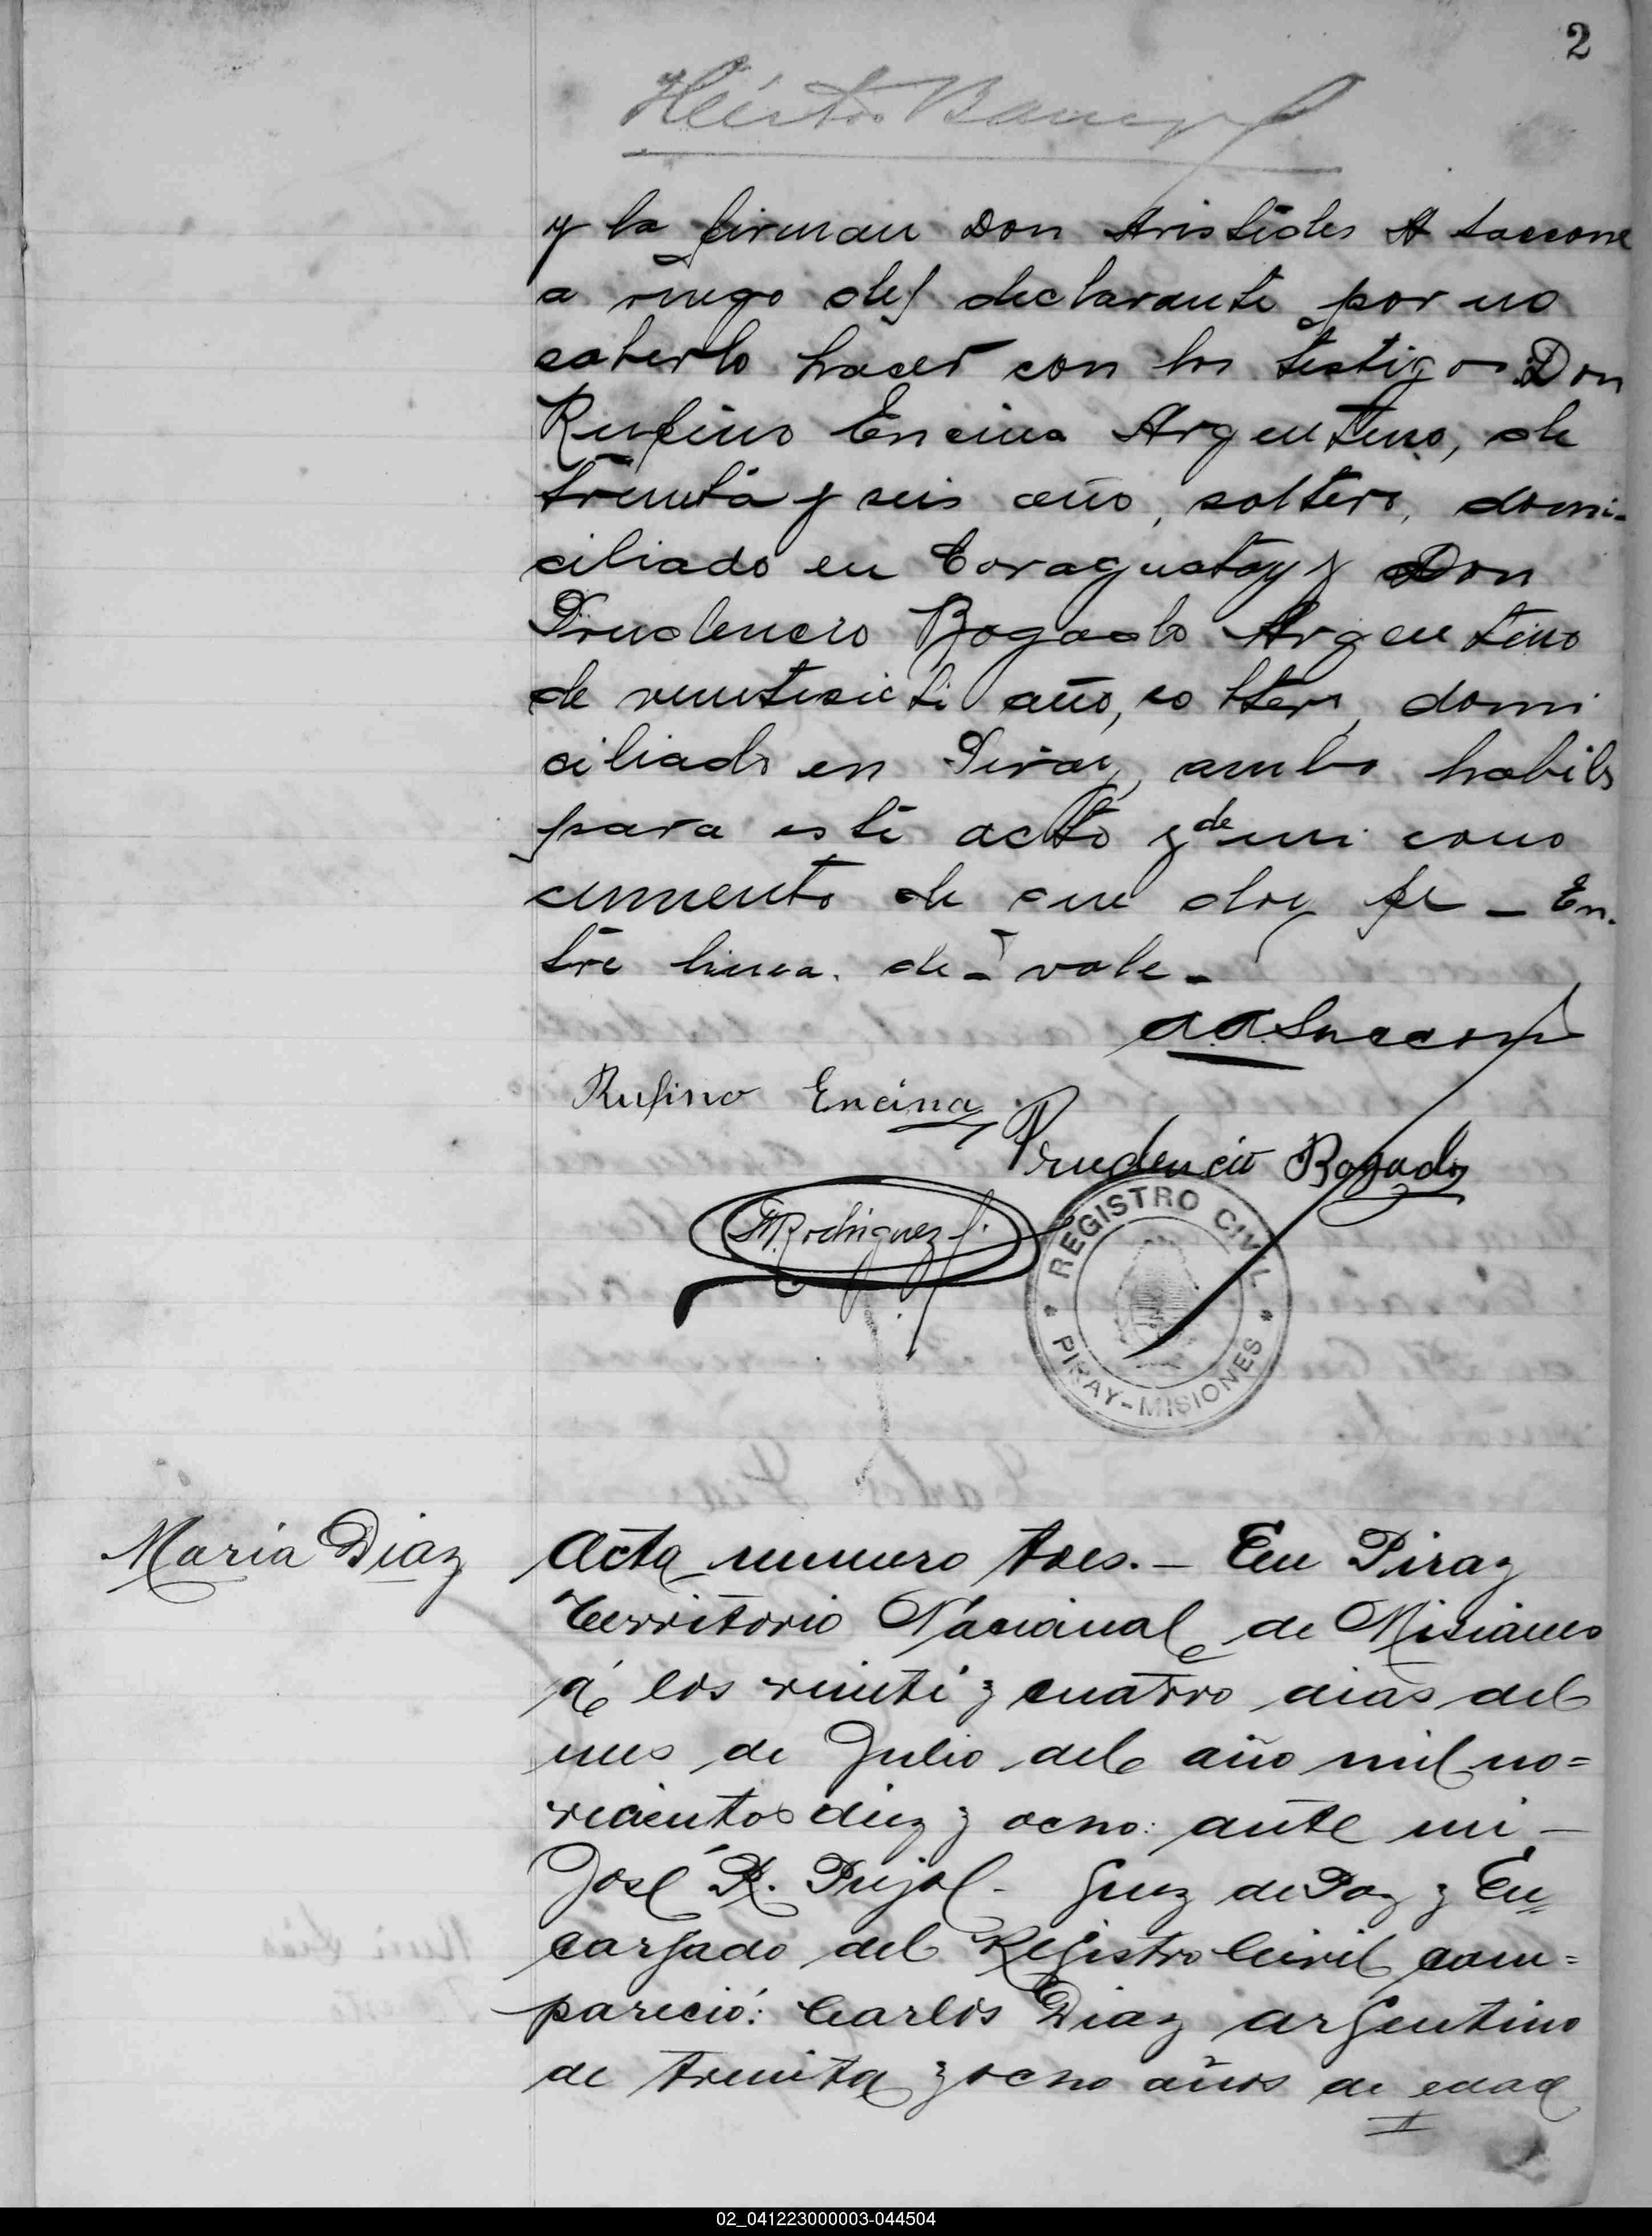 2
Héctor
y la firman Don Aristides A Saccone
a ruego del declarante por no
saberlo hacer con los testigos Don
Rufino Encina Argentino, de
treinta y seis año, soltero, domi-
ciliado en Caraguatay y Don
Prudencio Bogado Argentino
de veintisiete año, soltero, domi
ciliado en Piray, ambos habiles
para este acto y de mi cono
cimiento de que doy fe - En-
tre linea. de - vale -
A.A. Saccone
Rufino Encina
Prudencio Bogado
Rodriguez
REGISTRO CIVIL
PIRAY-MISIONES
Maria Diaz
Acta numero tres. - En Piray
Territorio Nacional de Misiones
á los veinti y cuatro dias del
mes de Julio del año mil no=
vecientos diez y ocho: ante mi -
José R. Pujol - Juez de Paz y En=
cargado del Registro Civil com=
pareció: Carlos Diaz argentino
de treinta y ocho años de edad
02_041223000003-044504